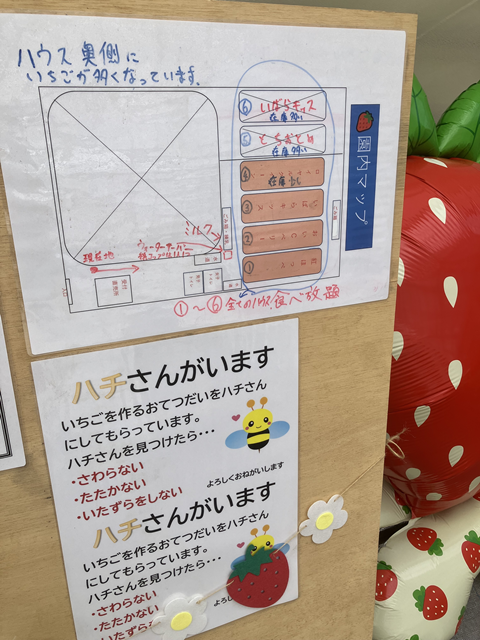 ハウス 奥側に
いちごが多くなっています。
園内マップ
⑥ いばらキッス
在庫多い
⑤ とちおとめ
在庫多い
④
在庫少し
③
②
①
ミルク
ウォーターサーバー
現在地
①～⑥ 全てのハウス食べ放題
ハチさんがいます
いちごを作るおてつだいをハチさん
にしてもらっています。
ハチさんを見つけたら･･･
・さわらない
・たたかない
・いたずらをしない
よろしくおねがいします
ハチさんがいます
いちごを作るおてつだいをハチさん
にしてもらっています。
ハチさんを見つけたら･･･
・さわらない
・たたかない
・いたずら
よろし